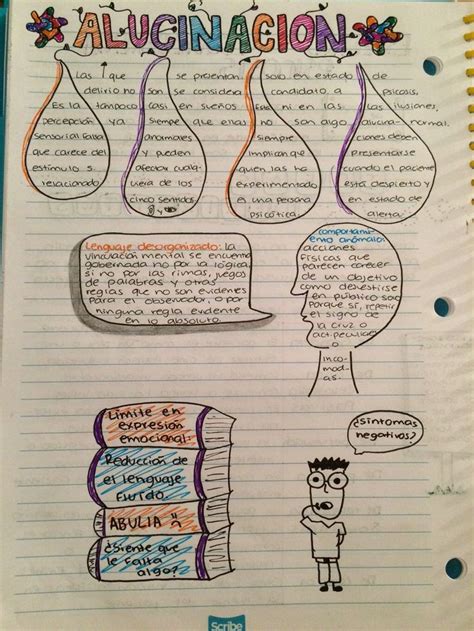 ALUCINACION
Las que se presentan solo en estado de
delirio no son se considera candidato a psicosis,
Es la tampoco asi en sueños ni en las ilusiones,
percepción ya siempre que ellas no son algo normal.
sensorial falsa
que carece del
estímulo
relacionado
anormales
y pueden
afectar cual-
quiera de los
cinco sentidos
siempre
implican que
quien las ha
experimentado
es una persona
psicótica.
ciones deben
presentarse
cuando el paciente
está despierto y
en estado de
alerta.
Lenguaje desorganizado: la
vinculación mental se encuentra
gobernada no por la lógica,
si no por las rimas, juegos
de palabras y otras
reglas que no son evidenes
para el observador, o por
ninguna regla evidente
en lo absoluto.
comportami-
ento anómalo:
acciones
físicas que
parecen carecer
de un objetivo
como desvestirse
en público
porque sí, repetir
el signo de
la cruz o
o
inco-
mod-
as.
Límite en
expresión
emocional:
Reducción de
el lenguaje
fluido.
ABULIA
¿Siente que
le falta
algo?
¿Síntomas
negativos?
Scribe